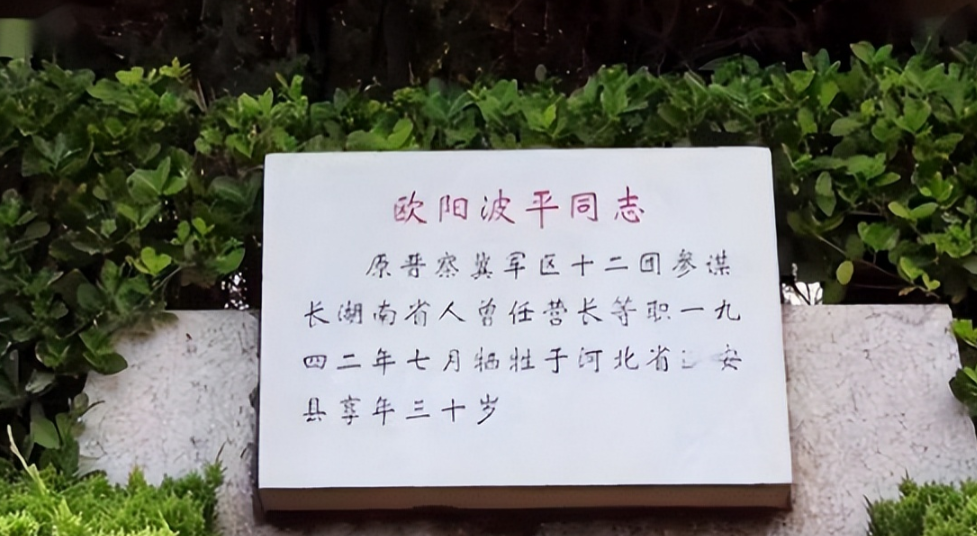 欧阳波平同志
原晋察冀军区十二团参谋
长湖南省人曾任营长等职一九
四二年七月牺牲于河北省 安
县享年三十岁